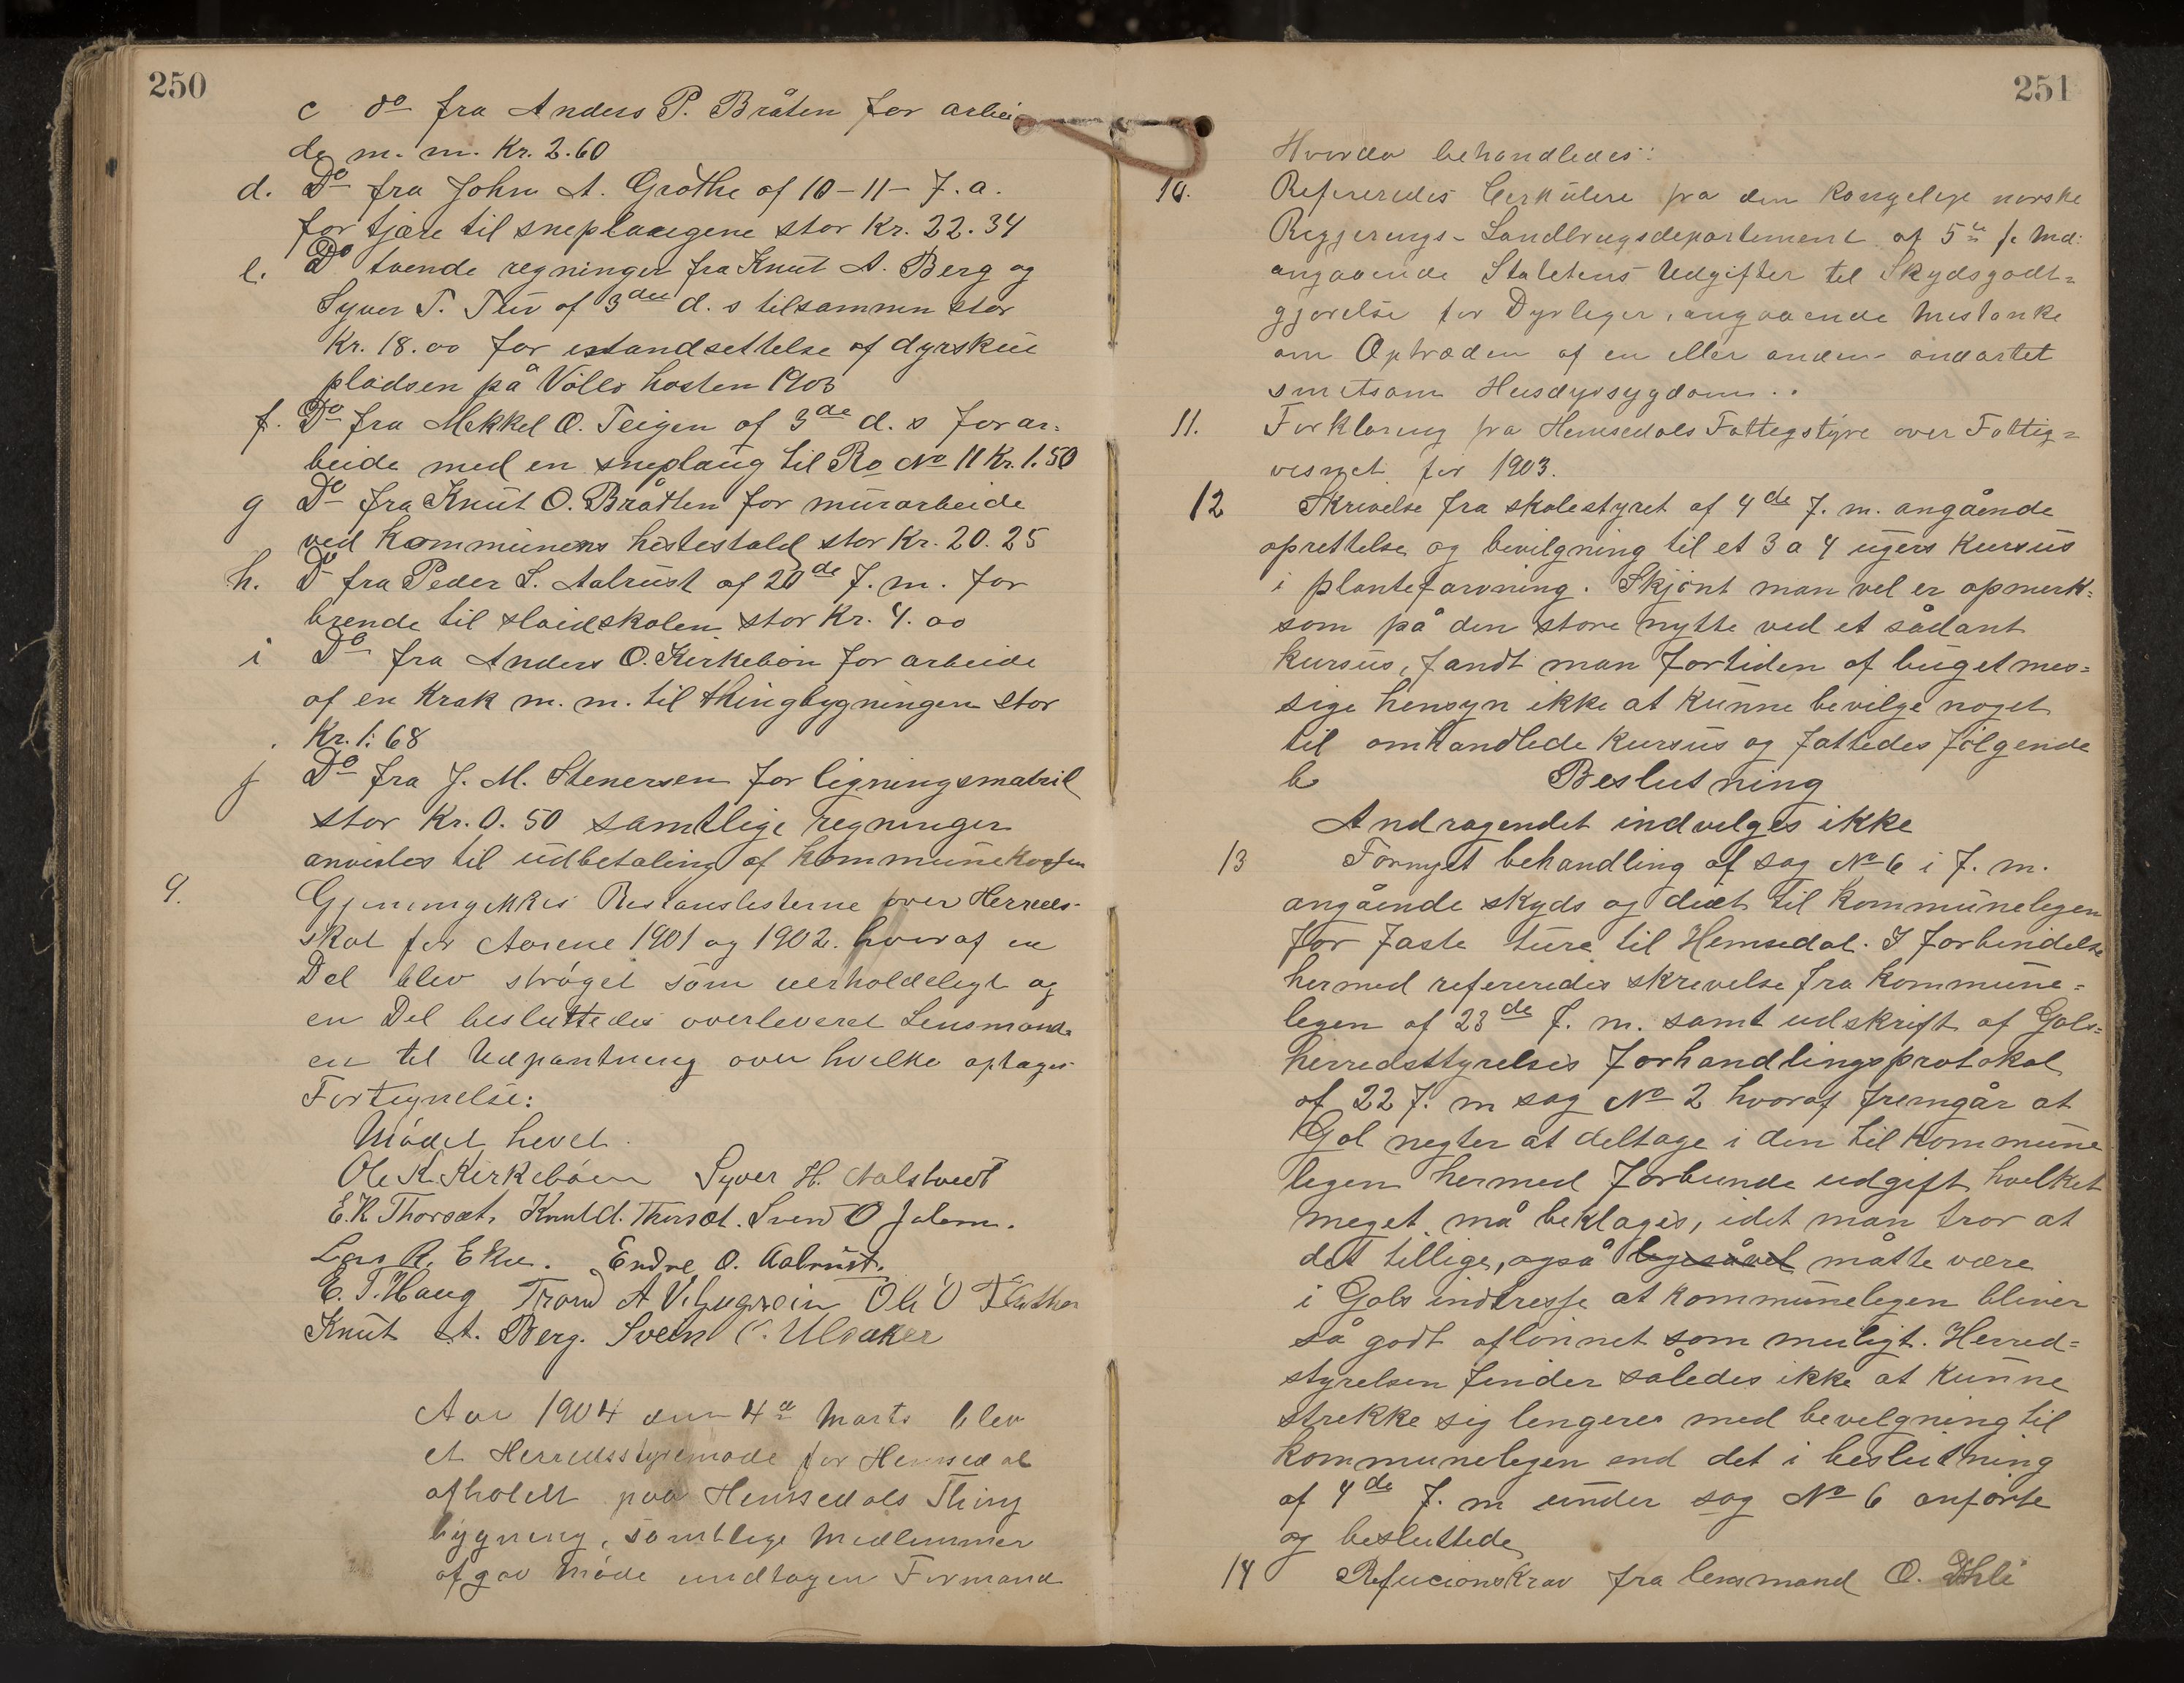 250
c do fra Anders P. Bråten for arbei-
de m. m. Kr. 2.60
d. Do fra John A. Grøthe af 10-11- f. a.
for tjære til sneplaugene stor Kr. 22.34
e. Do tvende regninger fra Knut A. Berg og
Syver T. Tuv af 3die d. s tilsammen stor
Kr. 18.00 for istandsettelse af dyrskue
pladsen på Vøler høsten 1903
f. Do fra Mekkel O. Teigen af 3de d. s for ar=
beide med en sneplaug til Ro No 11 Kr. 1.50
g Do fra Knut O. Bråtten for murarbeide
ved Kommunens hestestald stor Kr. 20.25
h. Do fra Peder S. Aalrust af 20de f. m. for
brende til sløidskolen stor Kr. 4.00
i Do fra Anders O. Kirkebøn for arbeide
af en Krak m. m. til thingbygningen stor
Kr. 1.68
j Do fra J. M. Stenersen for ligningsmatril
stor Kr. 0.50 samtlige regninger
anvistes til udbetaling af kommunekassen
9. Gjennemgikkes Restanslisterne over Herreds-
skat for Aarene 1901 og 1902. hvoraf en
Del blev strøget som uerholdeligt og
en Del besluttedes overleveret Lensmand-
en til Udpantning over hvilke optages
Fortegnelse:
Mødet hevet.
Ole K. Kirkebøen Syver H. Aalstveit
E. K Thorset, Knut d. Thorset. Svend O Jalem.
Lars R. Eke. Endre O. Aalrust.
E. T. Haug Trond A Ulugsvein Ole O Fløthen
Knut A. Berg. Svein O. Ulsaker
Aar 1904 den 4de Marts blev
et Herredsstyremøde for Hemsedal
afholdt paa Hemsedals Thing
bygning, samtlige Medlemmer
afgav Møde undtagen Formand
251
Hvorda behandledes:
10. Refereredes Cirkulære fra den kongelige norske
Regjerings-Landbrugsdepartement af 5te f. Md:
angaaende Statetens Udgifter til Skydsgodt=
gjørelse for Dyrleger, angaaende Mistanke
om Optræden af en eller anden ondartet
smitsom Husdyrsygdom..
11. Forklaring fra Hemsedals Fattigstyre over Fattig=
vesnet for 1903.
12 Skrivelse fra skolestyret af 4de f. m. angående
oprettelse og bevilgning til et 3 a 4 ugers Kursus
i plantefarvning. Skjønt man vel er opmerk=
som på den store nytte ved et sådant
kursus, fandt man fortiden af bugetmes=
sige hensyn ikke at kunne bevilge noget
til omhandlede kursus og fattedes følgende
b Beslutning
Andragendet indvilges ikke
13 Fornyet behandling af sag No 6 i f. m.
angående skyds og diæt til kommunelegen
for faste ture til Hemsedal. I forbindelse
hermed refereredes skrivelse fra kommune=
legen af 23de f. m. samt udskrift af Gols=
herredsstyrelses forhandlingsprotokol
af 22 f. m sag No 2 hvoraf fremgår at
Gol negter at deltage i den til kommune
legen hermed forbunde udgift, hvilket
meget må beklages, idet man tror at
det tillige, også ligesåvel måtte være
i Gols indtresse at kommunelegen bliver
så godt aflønnet som muligt. Herred=
styrelsen finder således ikke at kunne
strekke sig lengere med bevelgning til
kommunelegen end det i beslutning
af 4de f. m under sag No 6 anførte
og besluttede
14 Refucionskrav fra lensmand O. Dhli